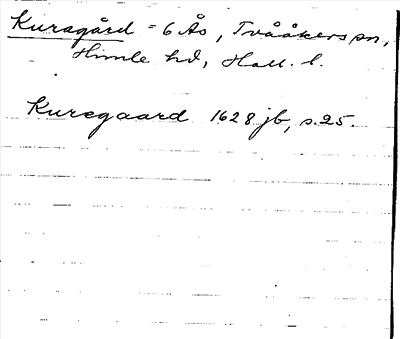 Kuragård = 6 Ås, Tvååkers sn,
Himle hd, Hall. l.
Kuregaard 1628 jb, s. 25.